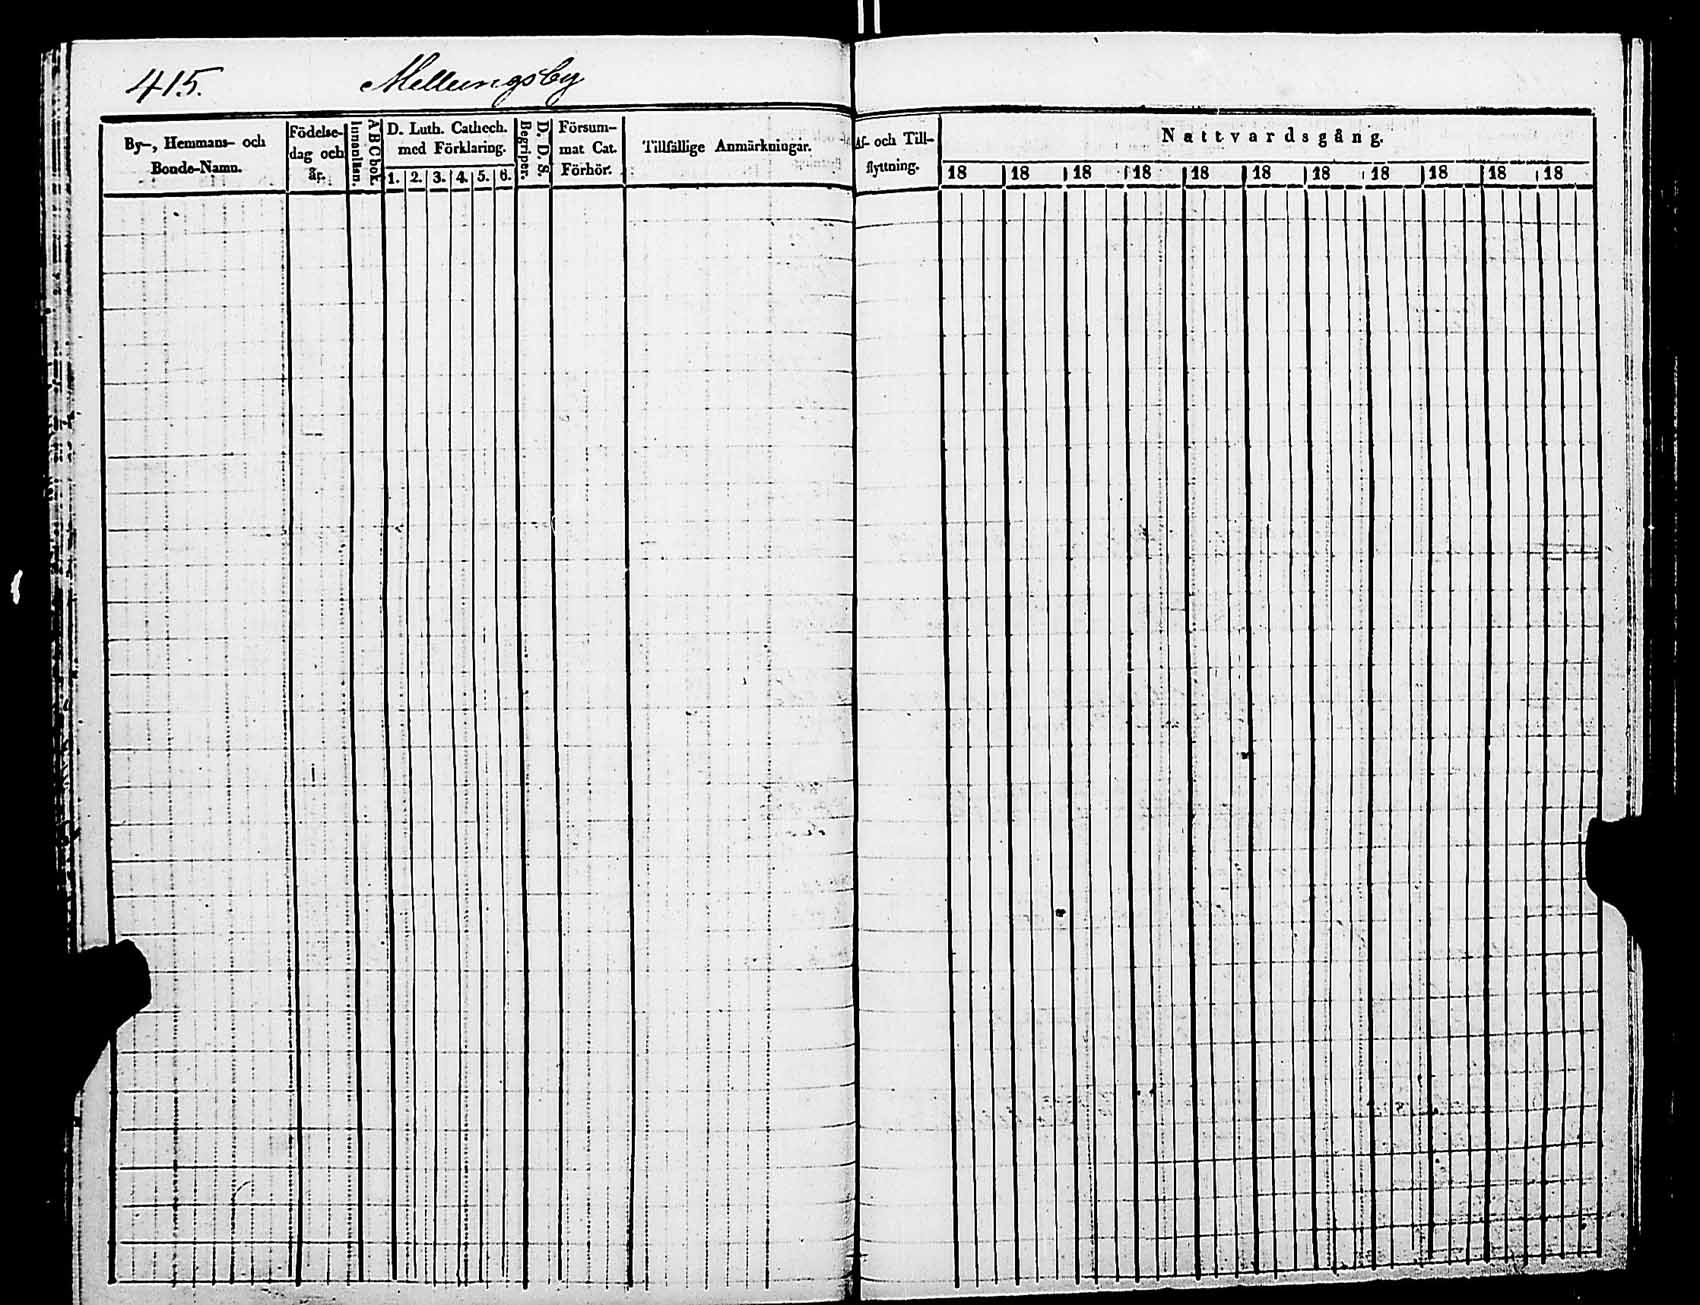 415. Mellungsby
By-, Hemmans- och
Bonde-Namn.
Födelse-
dag och
år.
Innanläsn.
ABCbok.
D. Luth. Cathech.
med Förklaring.
1. 2. 3. 4. 5. 6.
Begriper.
D. D. S.
Försum-
mat Cat.
Förhör.
Tillfällige Anmärkningar.
Af- och Till-
flyttning.
Nattvardsgång.
18 18 18 18 18 18 18 18 18 18 18